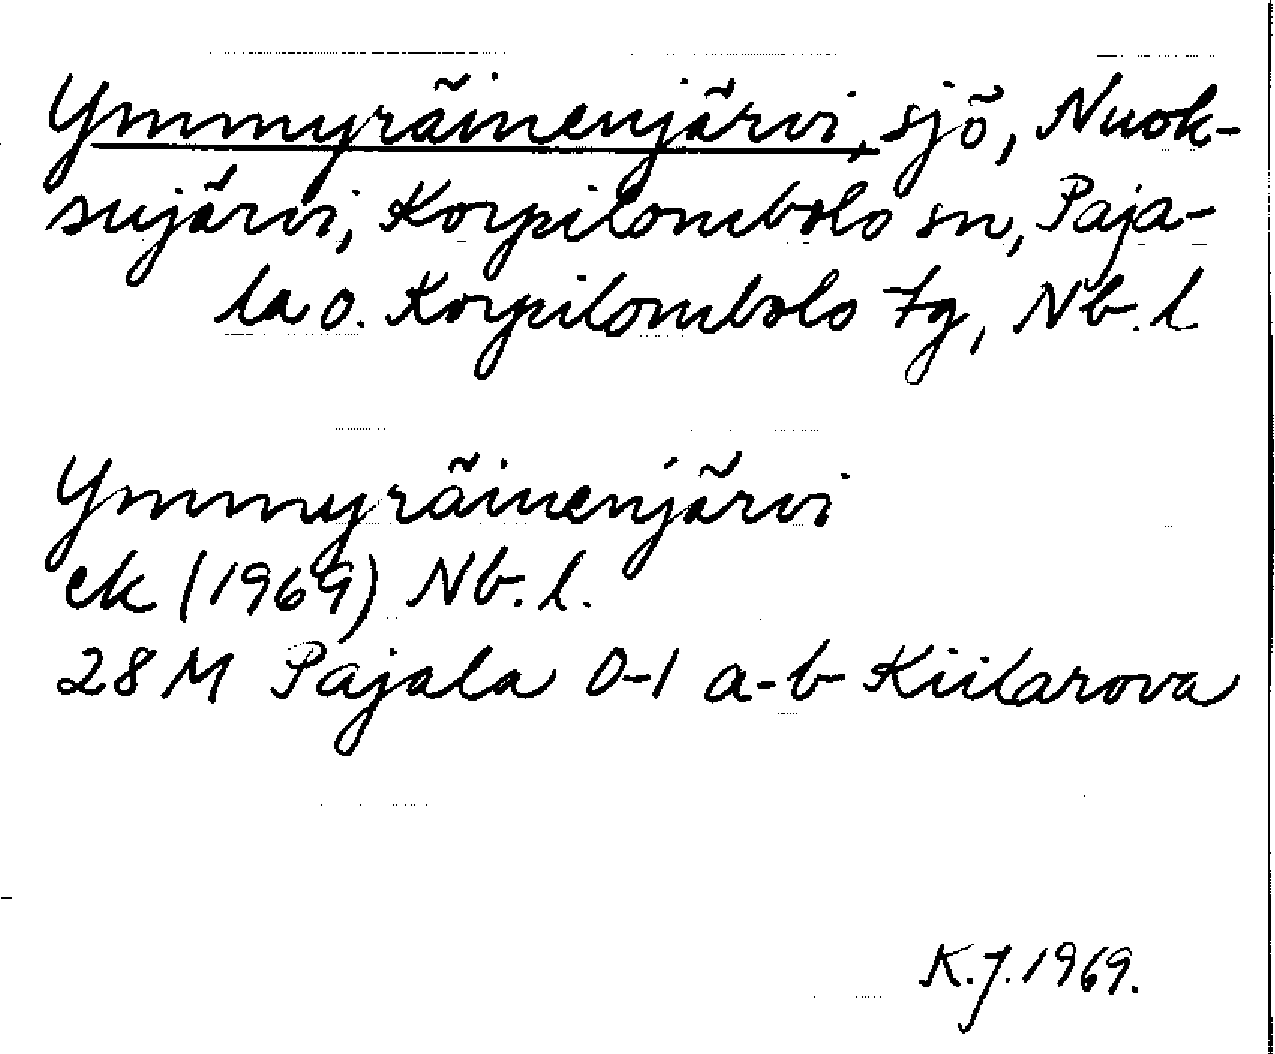 Ymmyräinenjärvi, sjö, Nuok-
sujärvi, Korpilombolo sn, Paja-
la o. Korpilombolo tg, Nb. l
Ymmyräinenjärvi
ek (1969) Nb. l.
28 M Pajala 0-1 a-b Kiilarova
K.J. 1969.